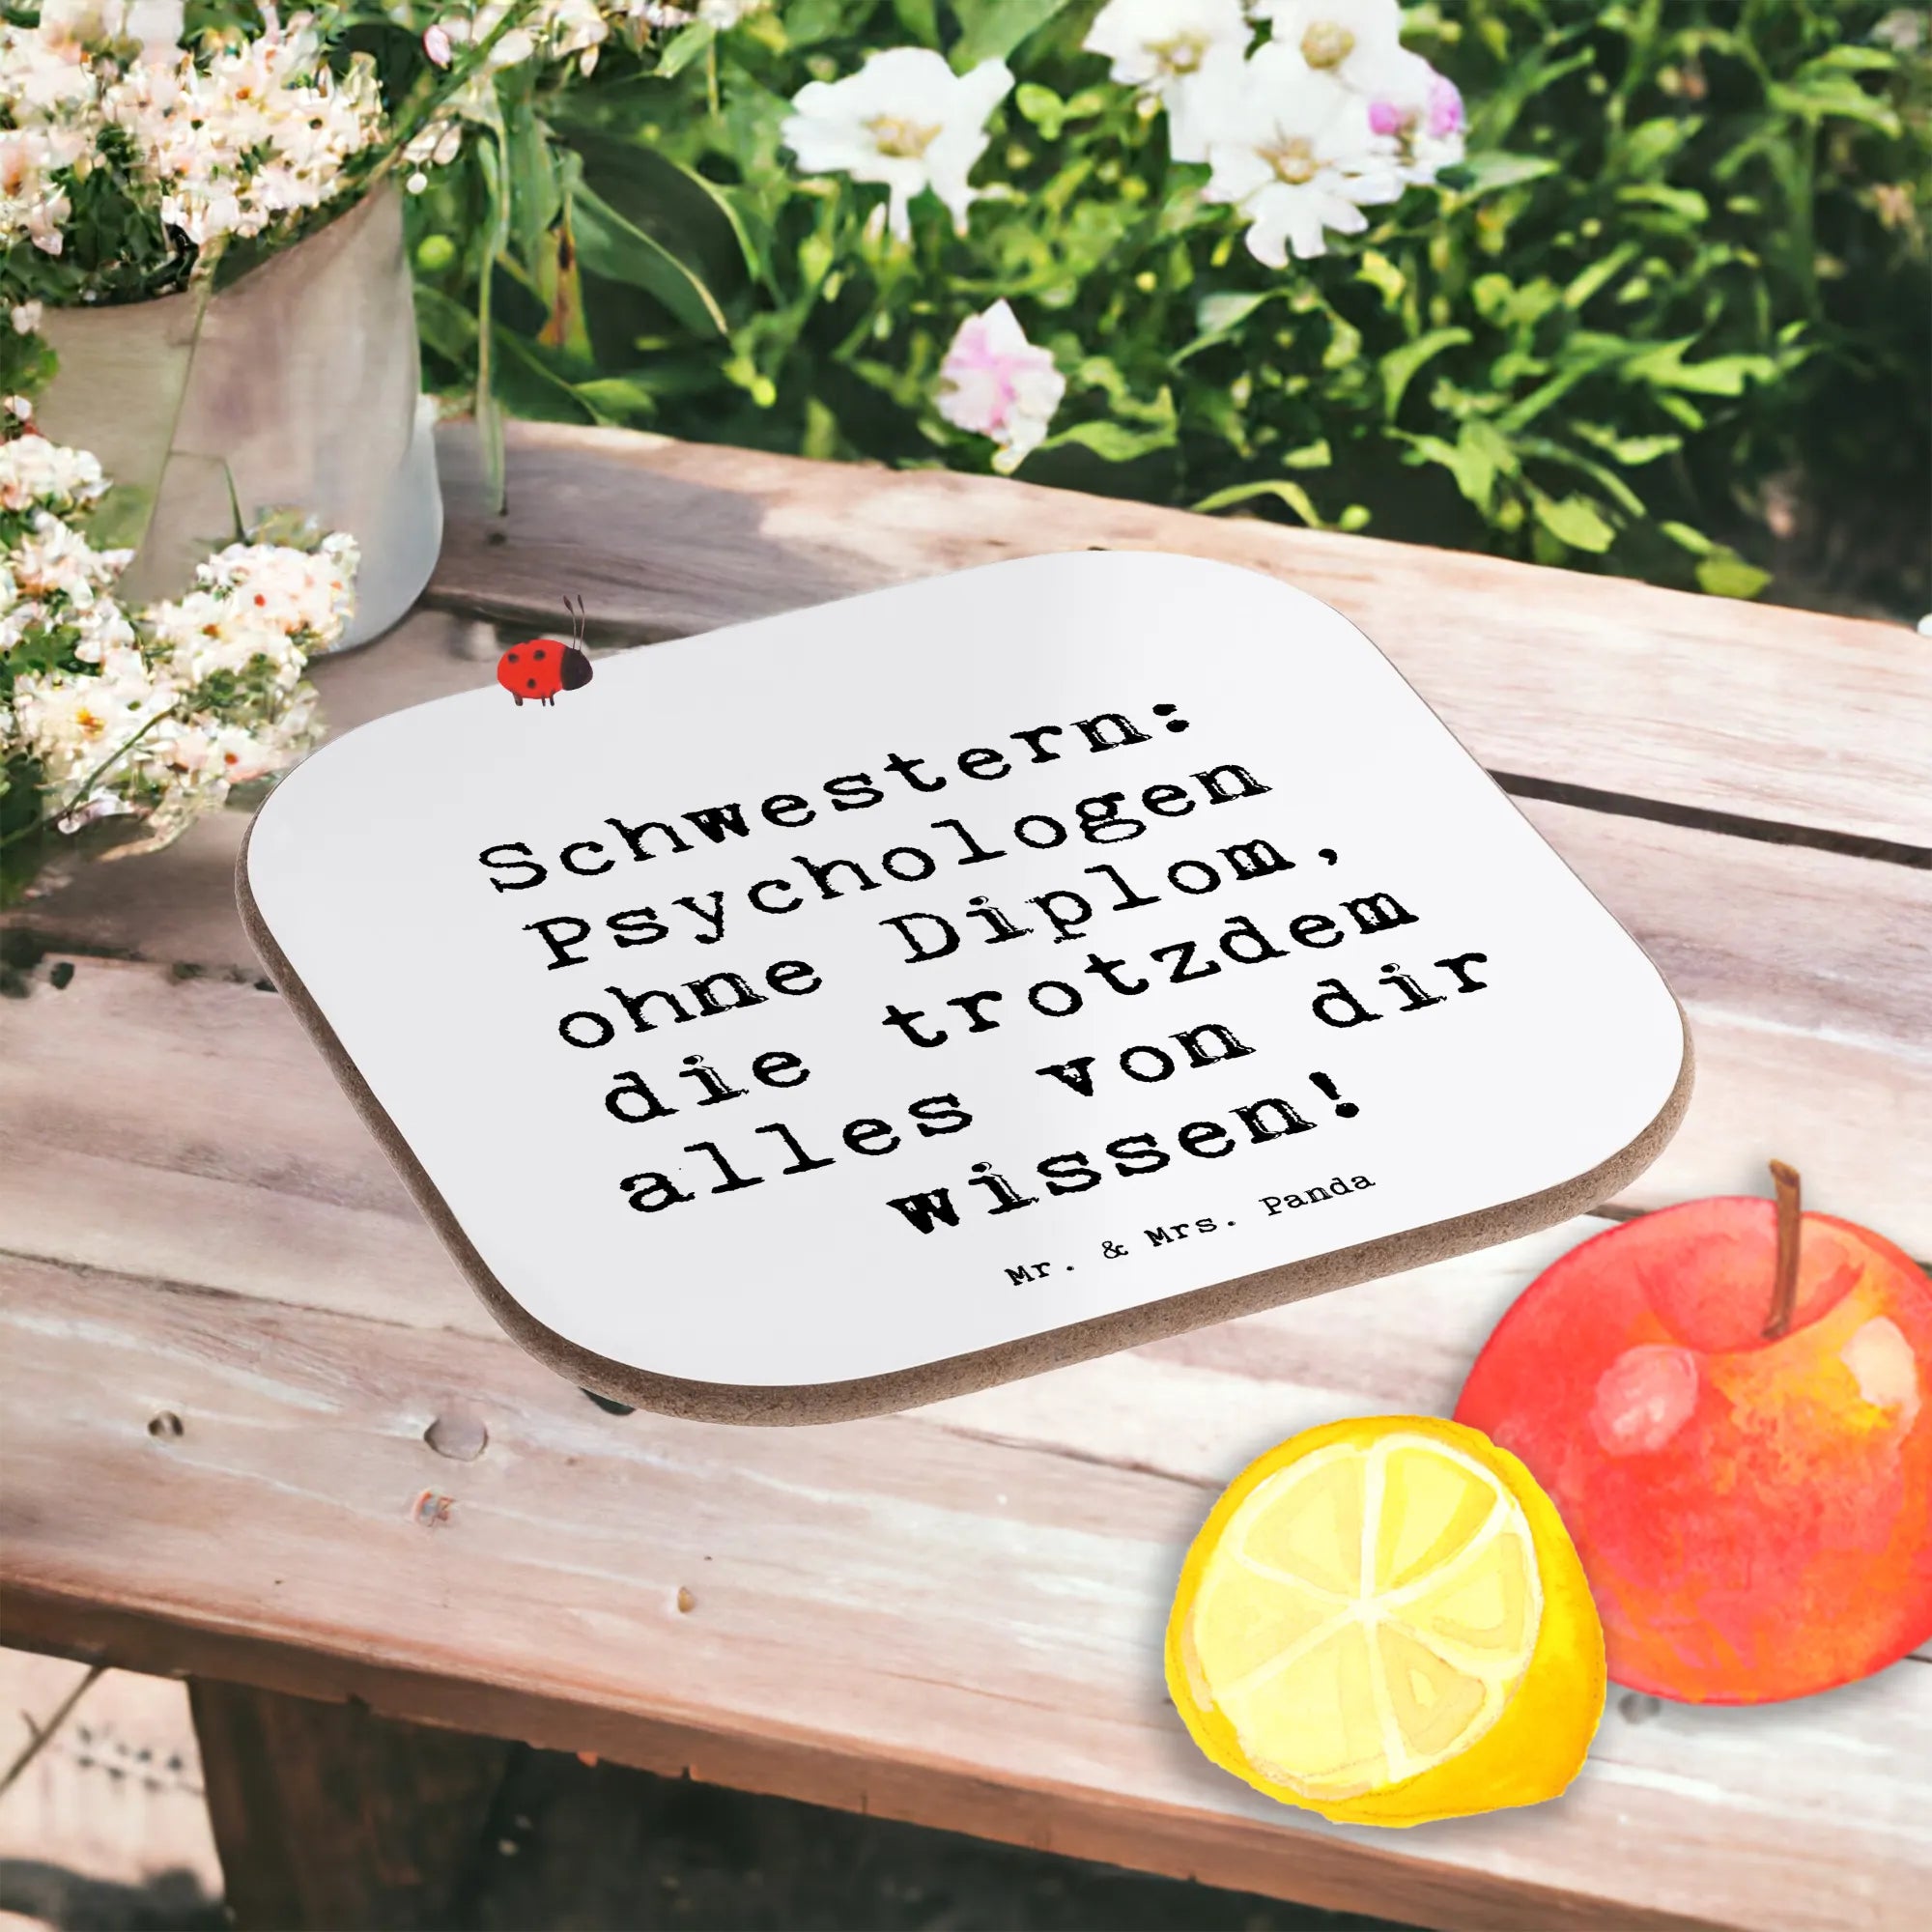 Schwestern:
Psychologen
ohne Diplom,
die trotzdem
alles von dir
wissen!
Mr. & Mrs. Panda